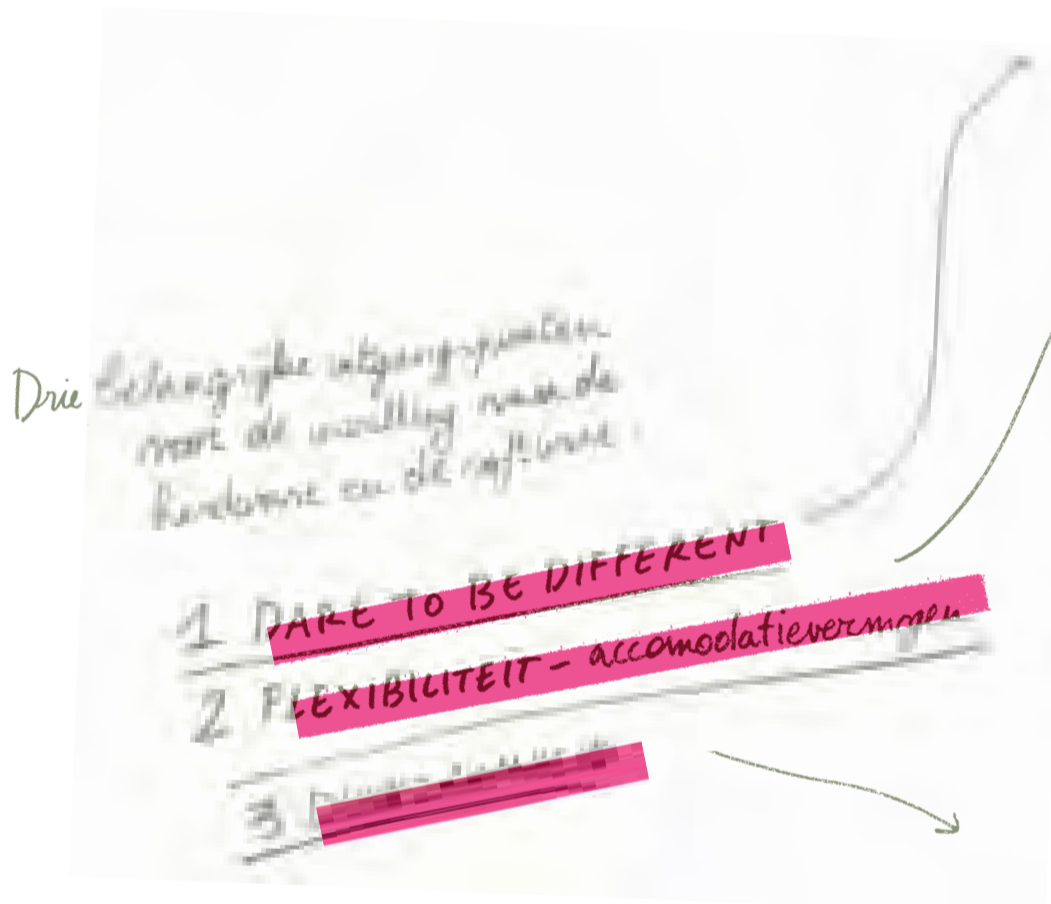 Drie belangrijke uitgangspunten
voor de invulling van de
hardware en de software
1 DARE TO BE DIFFERENT
2 FLEXIBILITEIT - accomodatievermogen
3